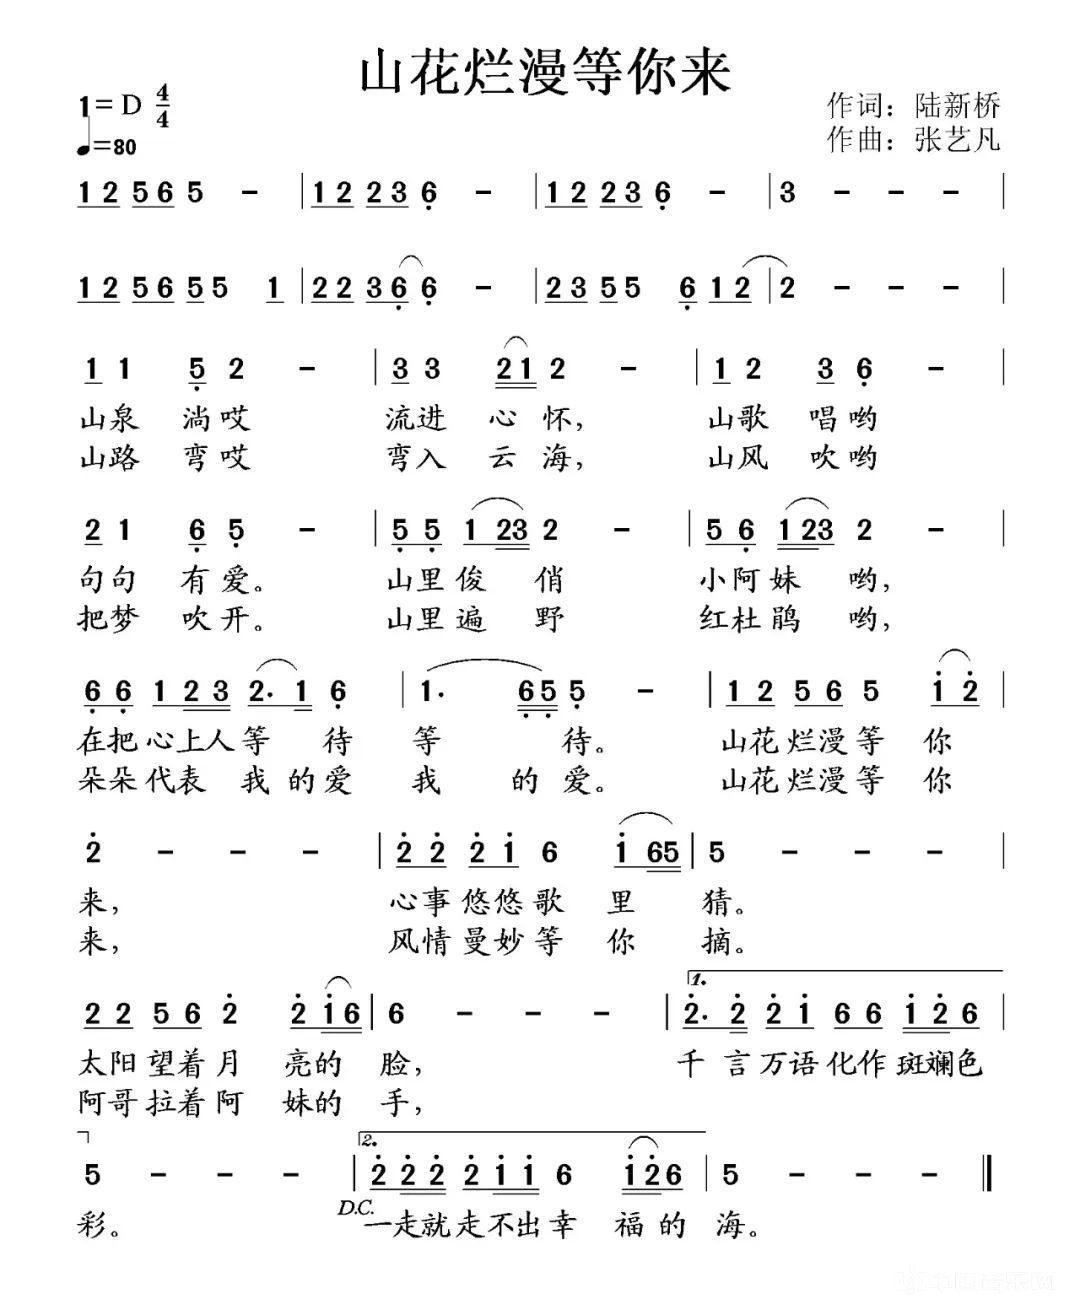 山花烂漫等你来
1=D 4/4
♩=80
作词：陆新桥
作曲：张艺凡
1 2 5 6 5 - | 1 2 2 3 6̣ - | 1 2 2 3 6̣ - | 3 - - - |
1 2 5 6 5 5 1 | 2 2 3 6̣ 6̣ - | 2 3 5 5 6̣ 1 2 | 2 - - - |
1 1 5̣ 2 - | 3 3 2 1 2 - | 1 2 3 6̣ - |
山泉 淌哎 流进 心 怀， 山歌 唱哟
山路 弯哎 弯入 云 海， 山风 吹哟
2 1 6̣ 5̣ - | 5̣ 5̣ 1 2 3 2 - | 5 6̣ 1 2 3 2 - |
句句 有爱。 山里俊 俏 小阿妹 哟，
把梦 吹开。 山里遍 野 红杜鹃 哟，
6̣ 6̣ 1 2 3 2. 1 6̣ | 1. 6̣ 5̣ 5̣ - | 1 2 5 6 5 1̇ 2̇
在把心上人等 待 等 待。 山花烂漫等 你
朵朵代表 我的爱 我 的爱。 山花烂漫等 你
2̇ - - - | 2̇ 2̇ 2̇ 1̇ 6 1̇ 6 5 | 5 - - - |
来， 心事悠悠歌 里 猜。
来， 风情曼妙等 你 摘。
1.
2 2 5 6 2̇ 2̇ 1̇ 6 | 6 - - - | 2̇. 2̇ 2̇ 1̇ 6 6 1̇ 2̇ 6 |
太阳望着月 亮的 脸， 千言万语化作斑斓色
阿哥拉着阿 妹的 手，
2.
5 - - - | 2̇ 2̇ 2̇ 2̇ 1̇ 1̇ 6 1̇ 2̇ 6 | 5 - - - ‖
彩。 D.C. 一走就走不出幸 福的 海。